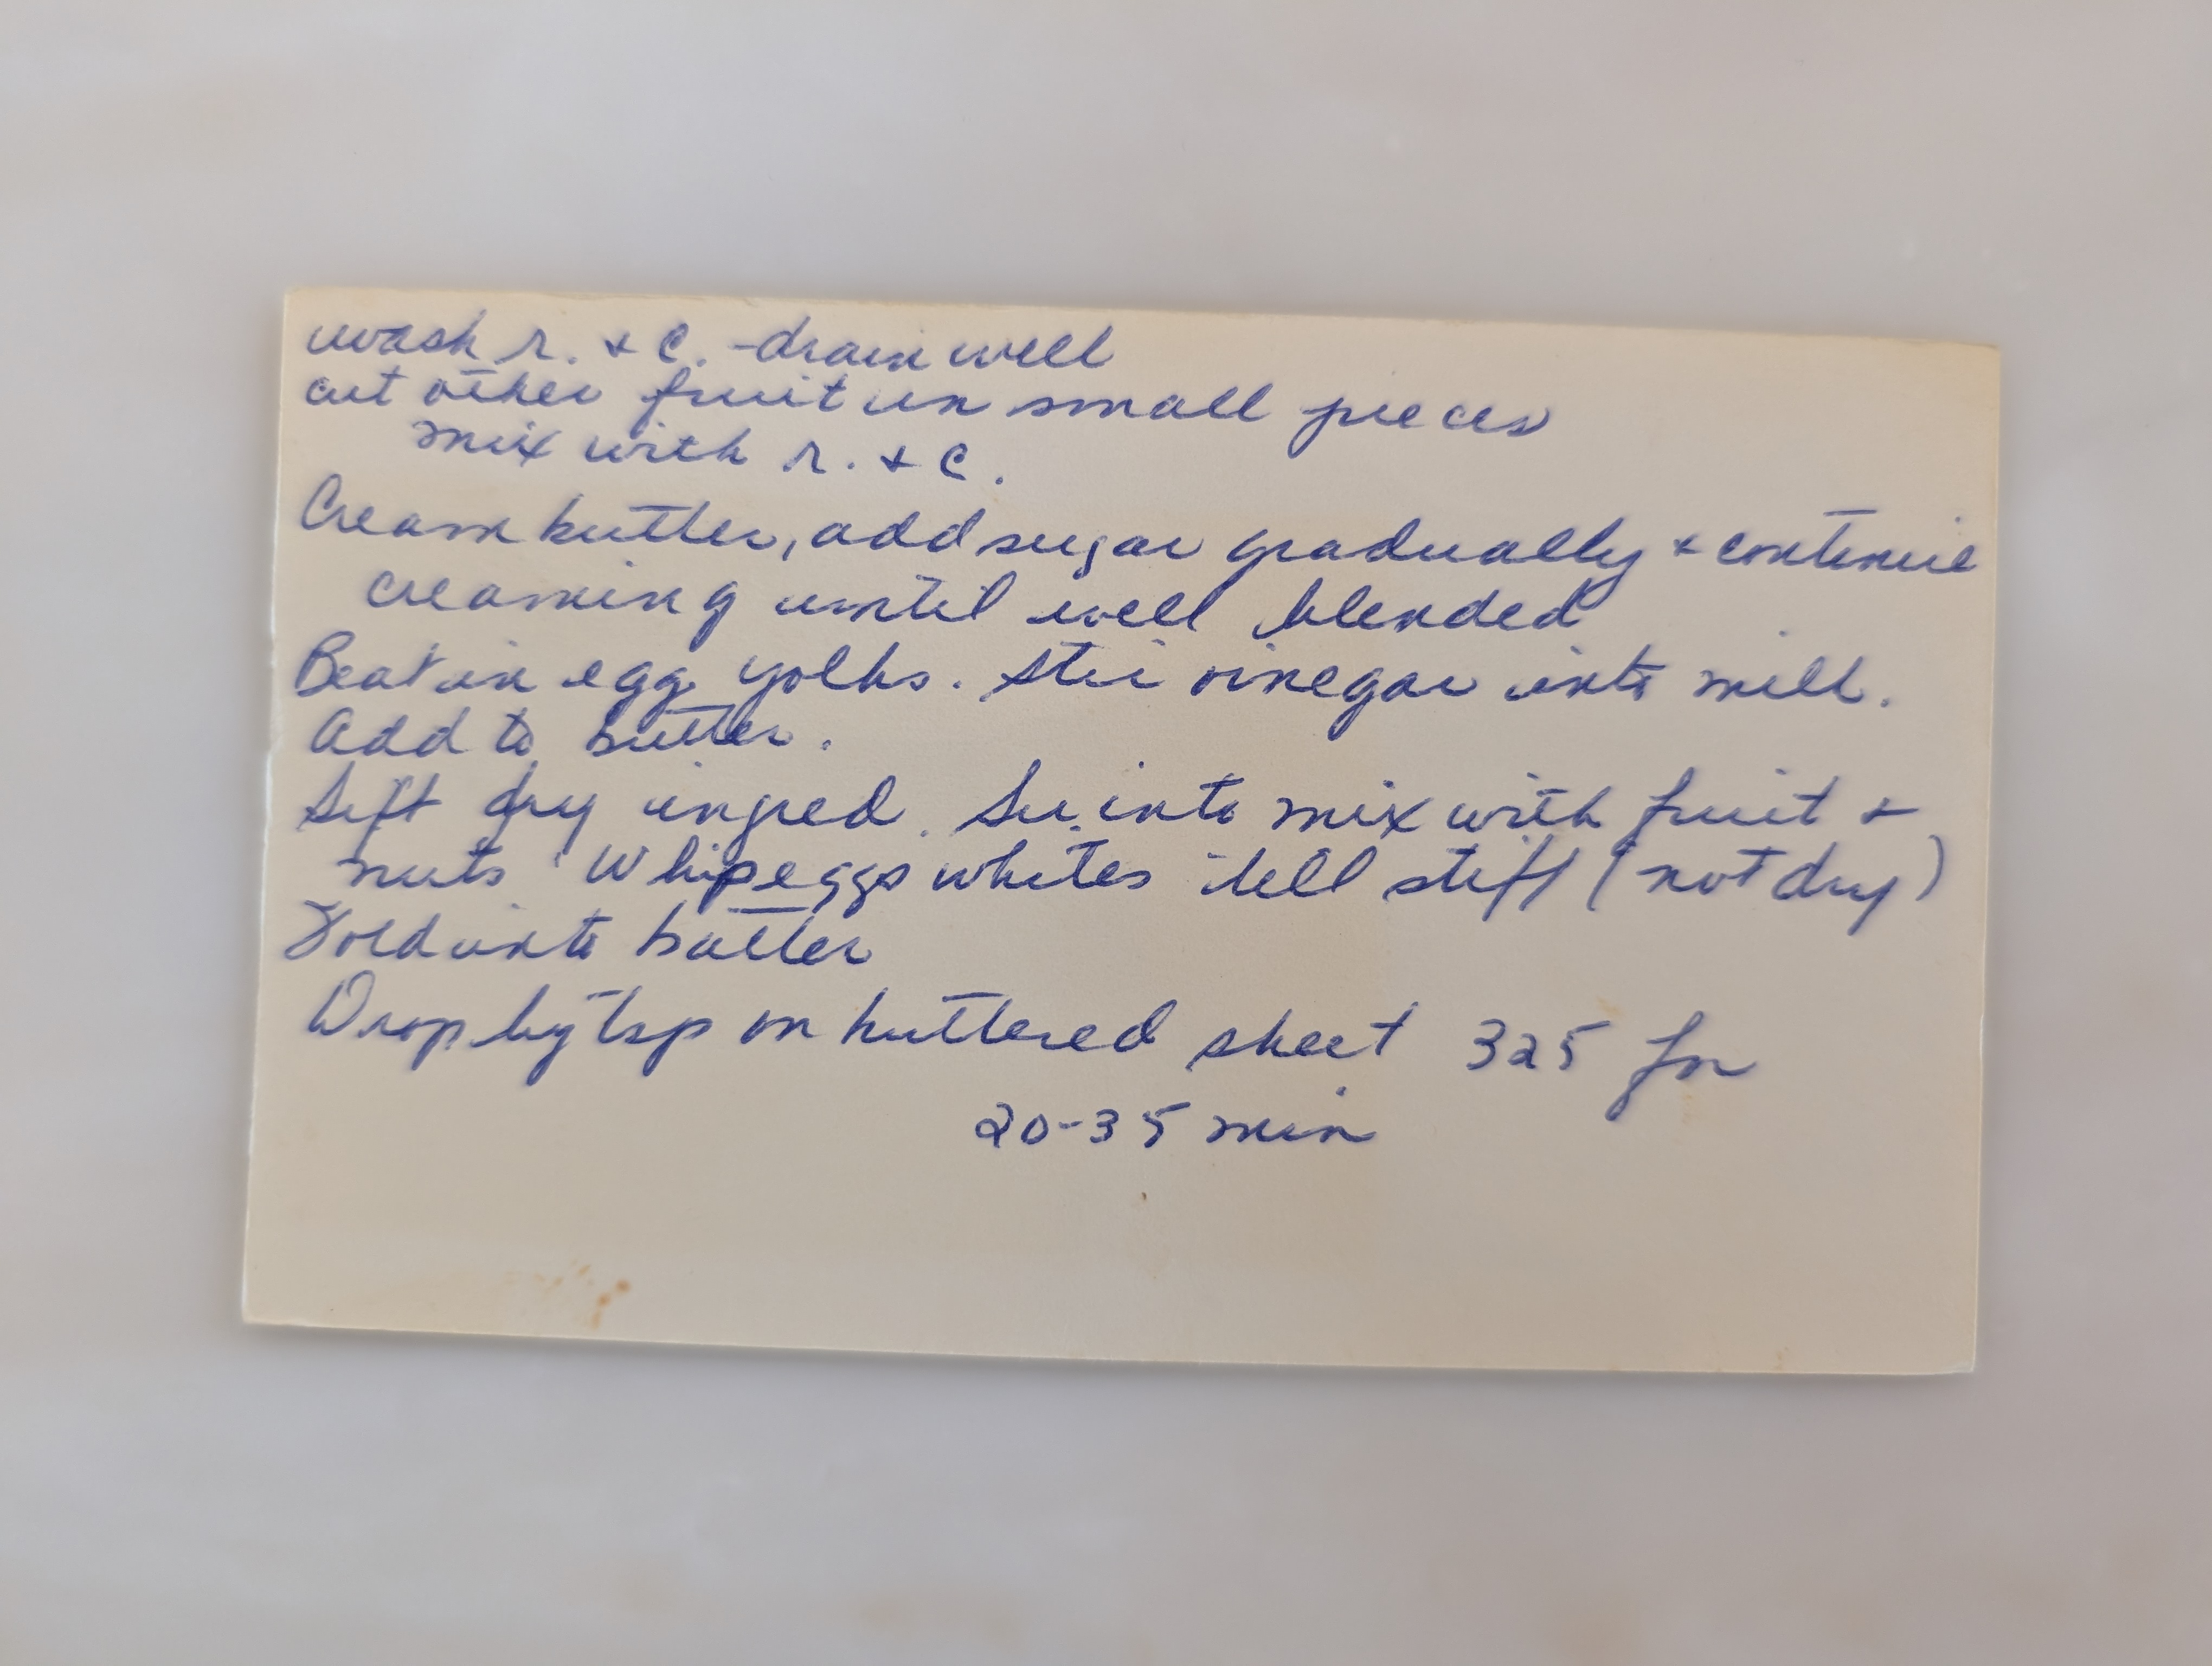 wash r. & c. - drain well
cut other fruit in small pieces
mix with r. & c.
Cream butter, add sugar gradually & continue
creaming until well blended
Beat in egg yolks. Stir vinegar into milk.
Add to butter.
Sift dry ingred. into mix with fruit &
nuts. Whip eggs whites till stiff (not dry)
Fold into batter
Drop by tsp on buttered sheet 325 for
20-35 min